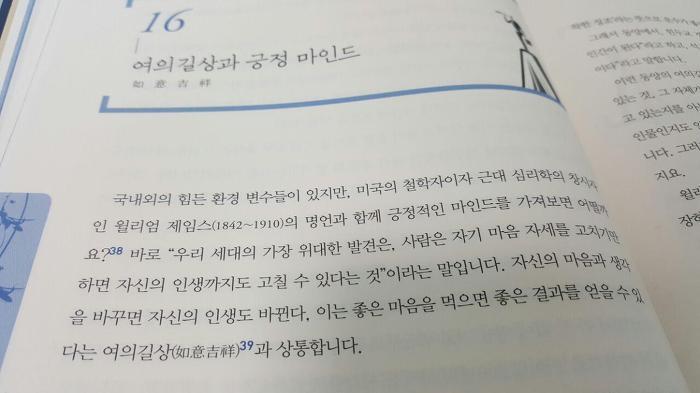 16
여의길상과 긍정 마인드
如意吉祥
국내외의 힘든 환경 변수들이 있지만, 미국의 철학자이자 근대 심리학의 창시자
인 윌리엄 제임스(1842~1910)의 명언과 함께 긍정적인 마인드를 가져보면 어떨까
요?38 바로 “우리 세대의 가장 위대한 발견은, 사람은 자기 마음 자세를 고치기만
하면 자신의 인생까지도 고칠 수 있다는 것”이라는 말입니다. 자신의 마음과 생각
을 바꾸면 자신의 인생도 바뀐다. 이는 좋은 마음을 먹으면 좋은 결과를 얻을 수 있
다는 여의길상(如意吉祥)39과 상통합니다.
그래서 동양에서,
인간이 된다”라고 하고,
이다”라고 말합니다.
어떤 동양의
있는 것, 그 자체가
고 있는지를
인물인지도
니다. 그러
지요.